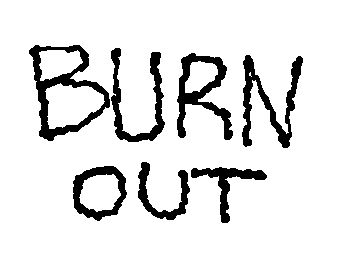 BURN
OUT